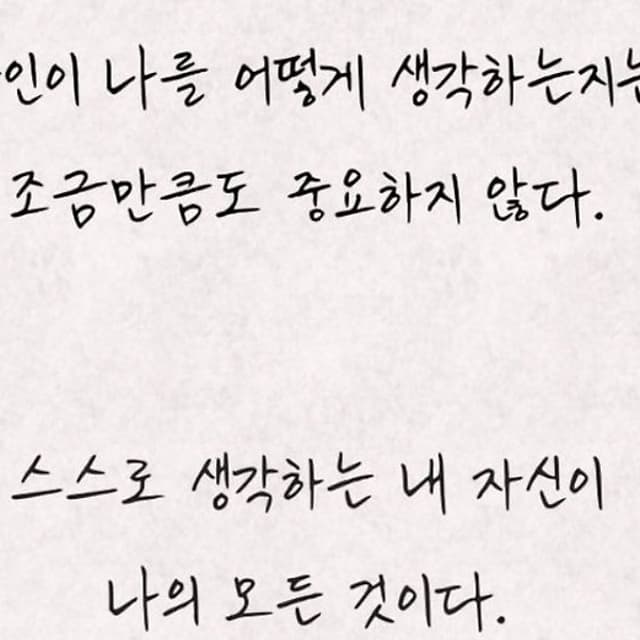 인이 나를 어떻게 생각하는지는
조금만큼도 중요하지 않다.
스스로 생각하는 내 자신이
나의 모든 것이다.